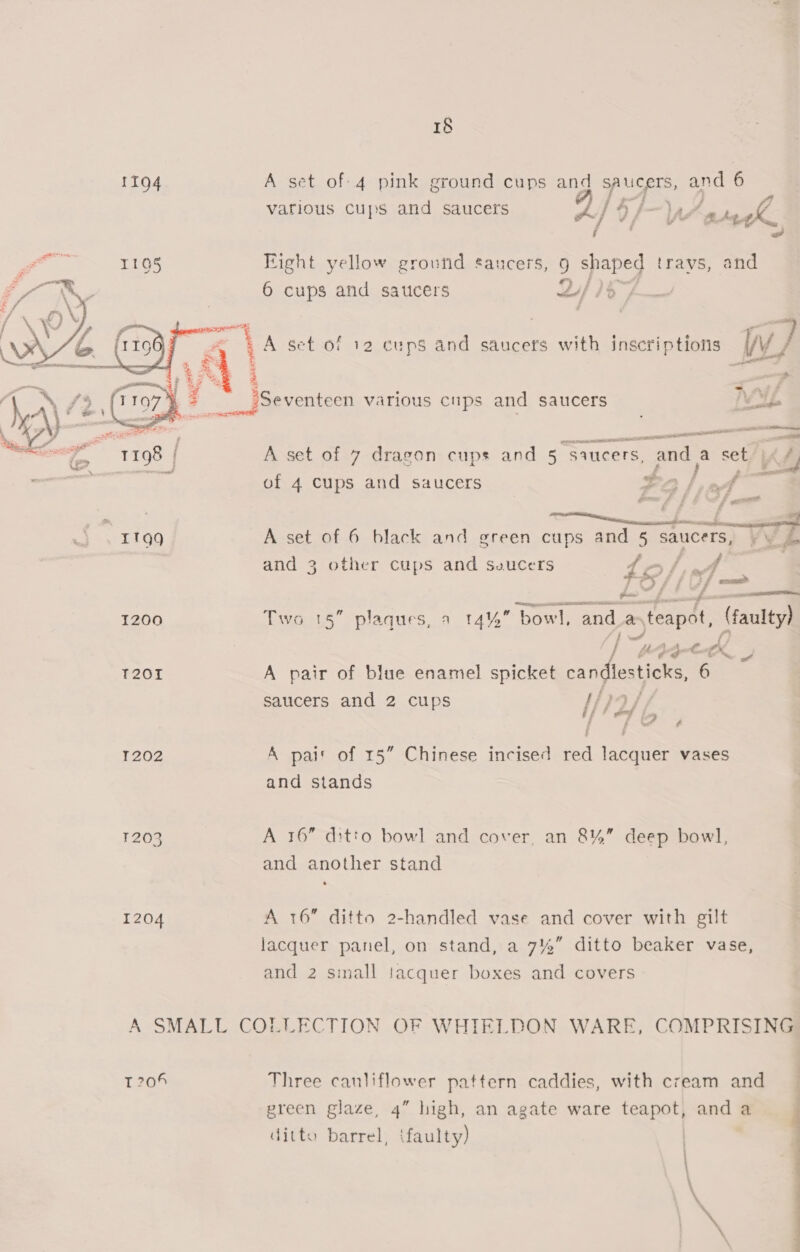 18
1194 A set of 4 pink ground cups and saucers, and 6
various cups and saucers
1195 Eight yellow ground saucers, 9 shaped trays, and
6 cups and saucers
1196 A set of 12 cups and saucers with inscriptions
1197 Seventeen various cups and saucers
1198 A set of 7 dragon cups and 5 saucers, and a set
of 4 cups and saucers
1199 A set of 6 black and green cups and 5 saucers,
and 3 other cups and saucers
1200 Two 15" plaques, a 14½" bowl, and a teapot, (faulty)
1201 A pair of blue enamel spicket candlesticks, 6
saucers and 2 cups
1202 A pair of 15" Chinese incised red lacquer vases
and stands
1203 A 16" ditto bowl and cover, an 8½" deep bowl,
and another stand
1204 A 16" ditto 2-handled vase and cover with gilt
lacquer panel, on stand, a 7½" ditto beaker vase,
and 2 small lacquer boxes and covers
A SMALL COLLECTION OF WHIELDON WARE, COMPRISING
1206 Three cauliflower pattern caddies, with cream and
green glaze, 4" high, an agate ware teapot, and a
ditto barrel, (faulty)